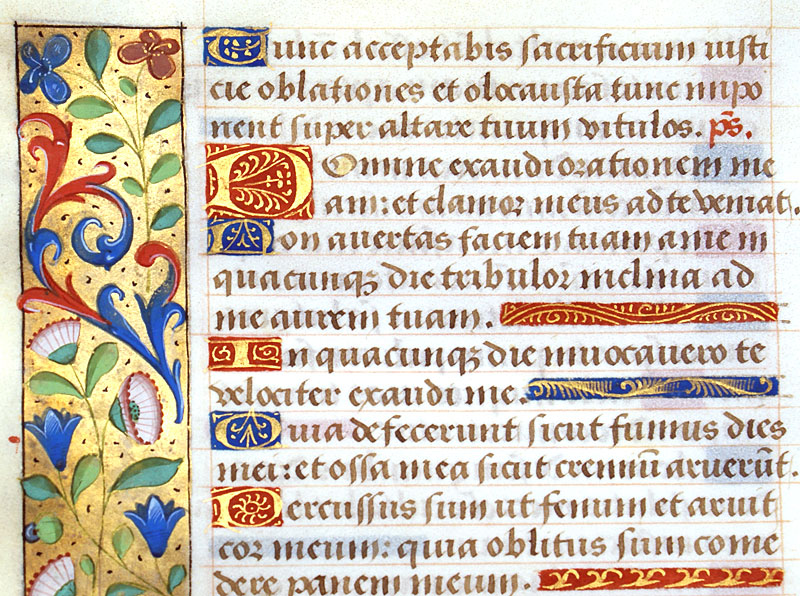 Tunc acceptabis sacrificium iusti
cie oblationes et olocausta tunc inpo
nent super altare tuum vitulos. ps̄.
Domine exaudi orationem me
am: et clamor meus ad te veniat.
Non avertas faciem tuam a me in
quacunqꝫ die tribulor inclina ad
me aurem tuam.
In quacunqꝫ die invocavero te
velociter exaudi me.
Quia defecerunt sicut fumus dies
mei: et ossa mea sicut cremiū aruerūt.
Percussus sum ut fenum et aruit
cor meum: quia oblitus sum come
dere panem meum.